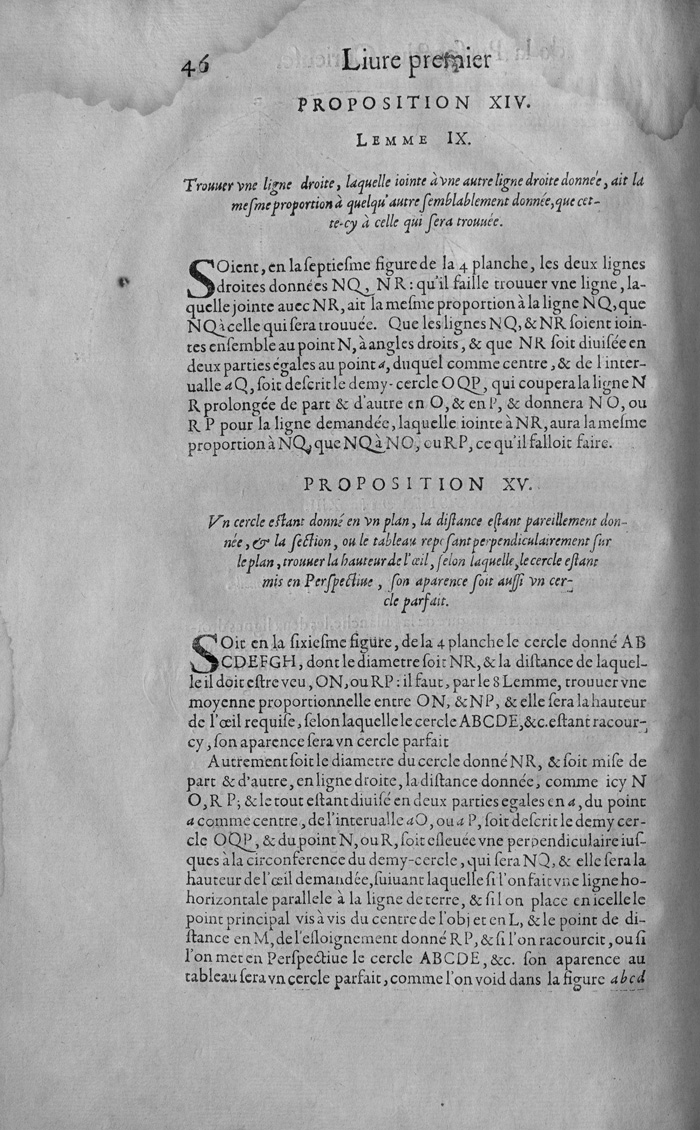 46 Liure premier
PROPOSITION XIV.
LEMME IX.
Trouuer vne ligne droite, laquelle iointe à vne autre ligne droite donnée, ait la
meſme proportion à quelqu'autre ſemblablement donnée, que cet-
te-cy à celle qui ſera trouuée.
SOient, en la ſeptieſme figure de la 4 planche, les deux lignes
droites données NQ, NR: qu'il faille trouuer vne ligne, la-
quelle jointe auec NR, ait la meſme proportion à la ligne NQ, que
NQ à celle qui ſera trouuée. Que les lignes NQ, & NR ſoient ioin-
tes enſemble au point N, à angles droits, & que NR ſoit diuiſée en
deux parties égales au point a, duquel comme centre, & de l'inter-
ualle aQ, ſoit deſcrit le demy-cercle OQP, qui coupera la ligne N
R prolongée de part & d'autre en O, & en P, & donnera NO, ou
RP pour la ligne demandée, laquelle iointe à NR, aura la meſme
proportion à NQ, que NQ à NO, ou RP, ce qu'il falloit faire.
PROPOSITION XV.
Vn cercle eſtant donné en vn plan, la diſtance eſtant pareillement don-
née, & la ſection, ou le tableau repoſant perpendiculairement ſur
le plan, trouuer la hauteur de l'œil, ſelon laquelle, le cercle eſtant
mis en Perſpectiue, ſon aparence ſoit auſſi vn cer-
cle parfait.
SOit en la ſixieſme figure, de la 4 planche le cercle donné AB
CDEFGH, dont le diametre ſoit NR, & la diſtance de laquel-
le il doit eſtre veu, ON, ou RP: il faut, par le 8 Lemme, trouuer vne
moyenne proportionnelle entre ON, & NP, & elle ſera la hauteur
de l'œil requiſe, ſelon laquelle le cercle ABCDE, &c. eſtant racour-
cy, ſon aparence ſera vn cercle parfait
Autrement ſoit le diametre du cercle donné NR, & ſoit miſe de
part & d'autre, en ligne droite, la diſtance donnée, comme icy N
O, RP; & le tout eſtant diuiſé en deux parties egales en a, du point
a comme centre, de l'interualle aO, ou aP, ſoit deſcrit le demy cer-
cle OQP, & du point N, ou R, ſoit eſleuée vne perpendiculaire iuſ-
ques à la circonference du demy-cercle, qui ſera NQ, & elle ſera la
hauteur de l'œil demandée, ſuiuant laquelle ſi l'on fait vne ligne ho-
horizontale parallele à la ligne de terre, & ſi l on place en icelle le
point principal vis à vis du centre de l'objet en L, & le point de di-
ſtance en M, de l'eſloignement donné RP, & ſi l'on racourcit, ou ſi
l'on met en Perſpectiue le cercle ABCDE, &c. ſon aparence au
tableau ſera vn cercle parfait, comme l'on void dans la figure abcd